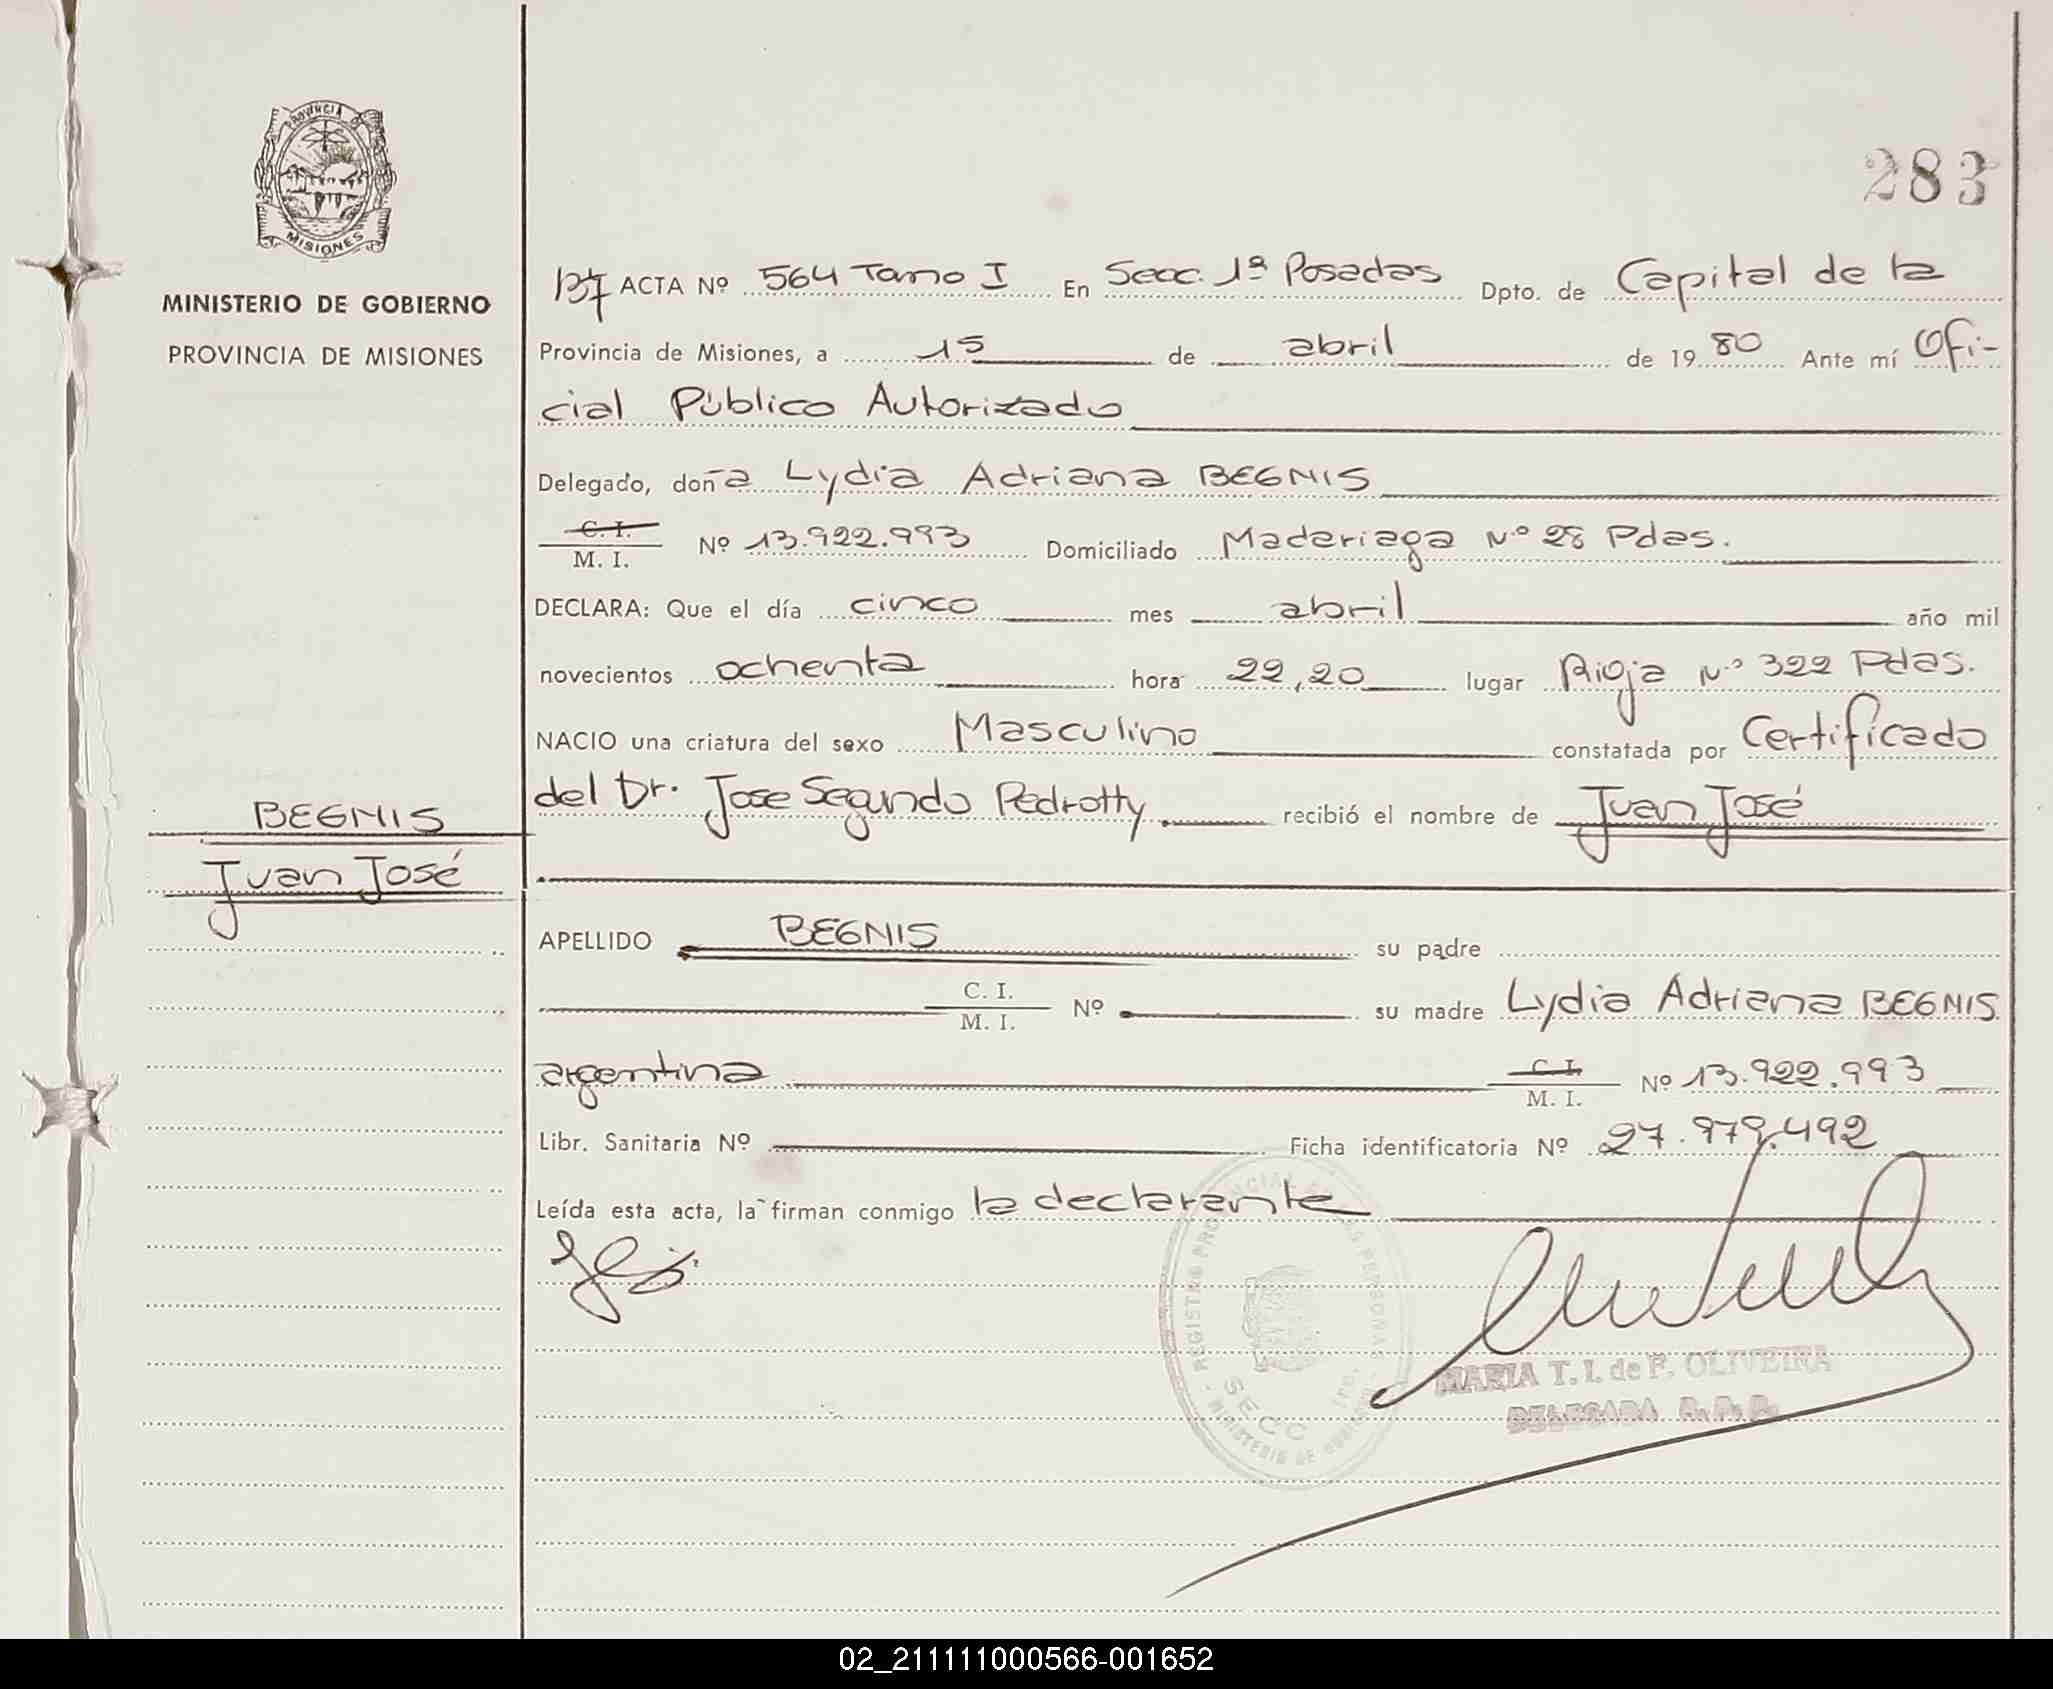 PROVINCIA D
MISIONES
MINISTERIO DE GOBIERNO
PROVINCIA DE MISIONES
283
ACTA Nº 564 Tomo I En Secc. 1ª Posadas Dpto. de Capital de la
Provincia de Misiones, a 15 de abril de 1980 Ante mí Ofi-
cial Público Autorizado
Delegado, doña Lydia Adriana BEGNIS
C. I.
M. I. Nº 13.922.993 Domiciliado Madariaga Nº 28 Pdas.
DECLARA: Que el día cinco mes abril año mil
novecientos ochenta hora 22,20 lugar Rioja Nº 322 Pdas.
NACIO una criatura del sexo Masculino constatada por Certificado
del Dr. Jose Segundo Pedrotty recibió el nombre de Juan José
BEGNIS
Juan José
APELLIDO BEGNIS su padre
C. I.
M. I. Nº su madre Lydia Adriana BEGNIS
argentina C. I.
M. I. Nº 13.922.993
Libr. Sanitaria Nº Ficha identificatoria Nº 27.979.492
Leída esta acta, la firman conmigo la declarante
REGISTRO PROVINCIAL DE LAS PERSONAS
SECC 1ra.
MINISTERIO DE GOBIERNO
MARIA T. I. de F. OLIVEIRA
DELEGADA R.P.P.
02_211111000566-001652